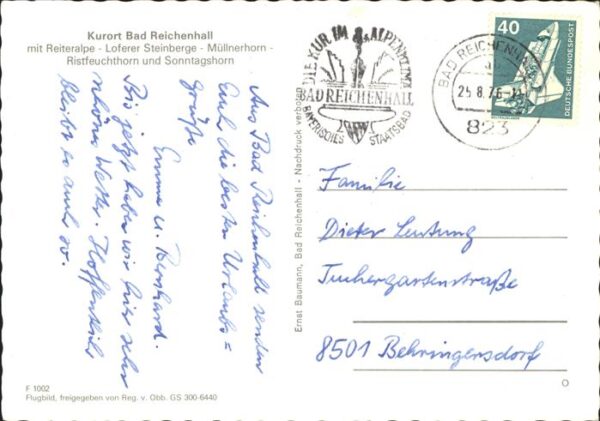 Kurort Bad Reichenhall
mit Reiteralpe - Loferer Steinberge - Müllnerhorn -
Ristfeuchthorn und Sonntagshorn
Aus Bad Reichenhall senden
Euch die besten Urlaubs=
grüße
Emma u. Bernhard.
Bis jetzt haben wir hier sehr
schönes Wetter. Hoffentlich
bleibt es auch so.
F 1002
Flugbild, freigegeben von Reg. v. Obb. GS 300-6440
Ernst Baumann, Bad Reichenhall - Nachdruck verboten
DIE KUR IM ALPENKLIMA
BAD REICHENHALL
BAYERISCHES STAATSBAD
BAD REICHENHALL
25.8.76
823
40
DEUTSCHE BUNDESPOST
Familie
Dieter
Tuchergartenstraße
8501 Behringersdorf